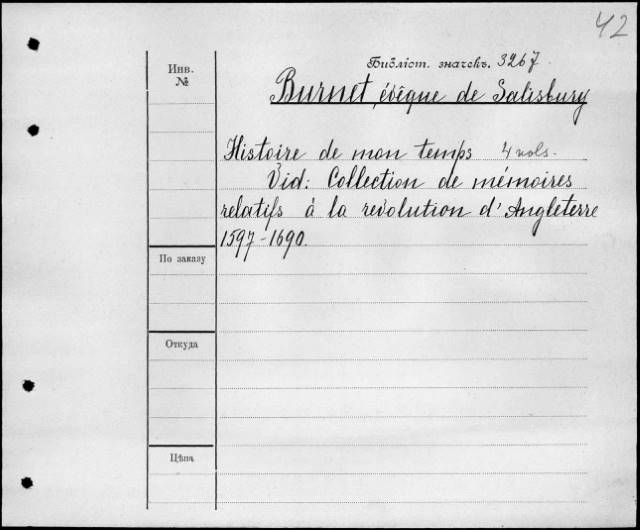 42
Библіот. значекъ. 3267.
Инв.
№
Burnet, évêque de Salisbury
Histoire de mon temps 4 vols.
Vid: Collection de mémoires
relatifs à la revolution d'Angleterre
1597-1690.
По заказу
Откуда
Цѣна